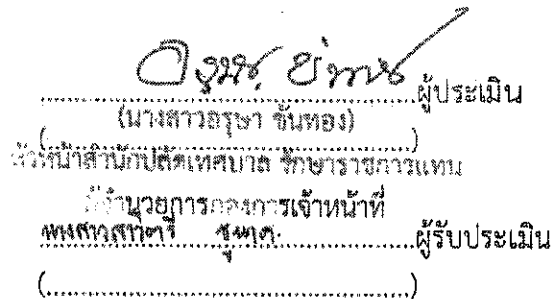 ผู้ประเมิน
(นางสาวอรุษา ขันทอง)
หัวหน้าสำนักปลัดเทศบาล รักษาราชการแทน
ผู้อำนวยการกองการเจ้าหน้าที่
ผู้รับประเมิน
(.......................................................)